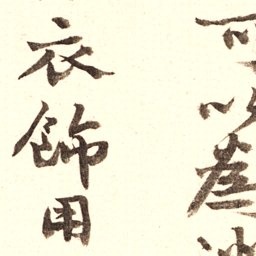 可以
衣飾用